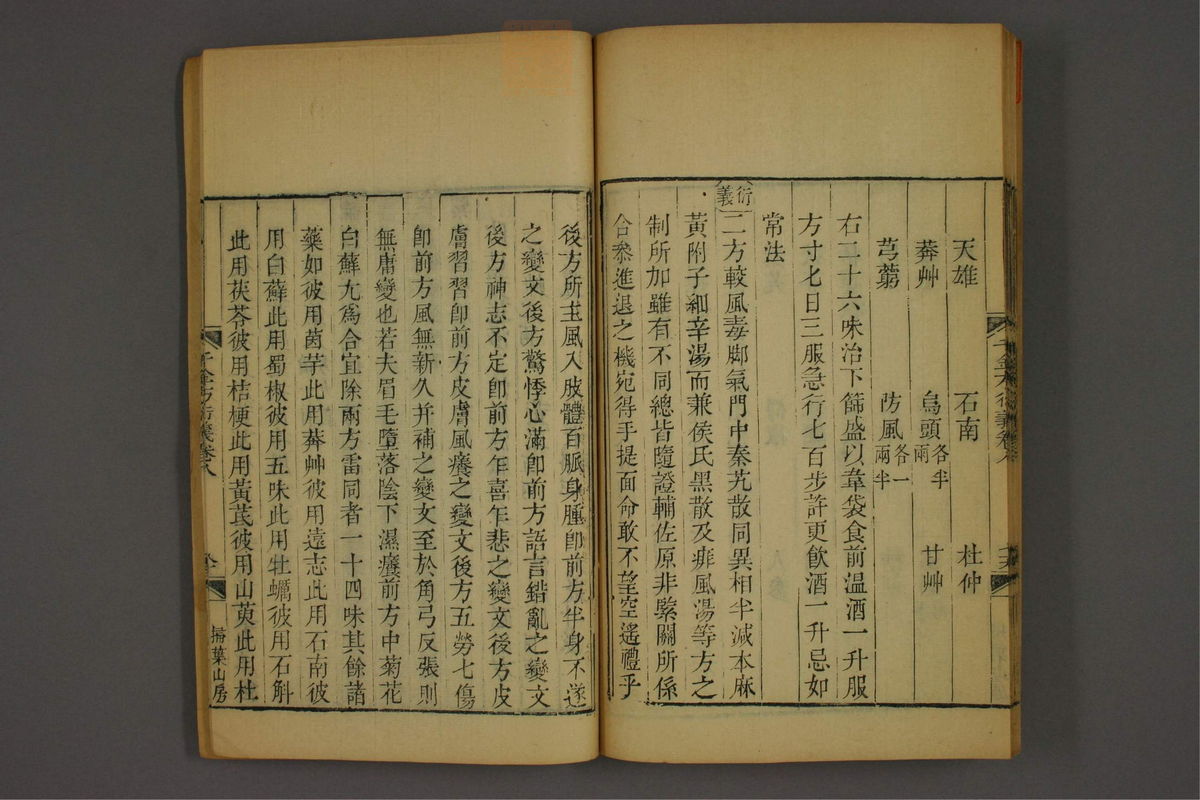 天雄 石南 杜仲
莽艸 烏頭各半兩 甘艸
芎藭 防風各一兩半
右二十六味治下篩盛以韋袋食前温酒一升服
方寸匕日三服急行七百步許更飲酒一升忌如
常法
衍義
二方較風毒脚氣門中秦艽散同異相半減本麻
黃附子細辛湯而兼侯氏黑散及痱風湯等方之
制所加雖有不同總皆隨證輔佐原非緊關所係
合叅進退之機宛得手提面命敢不望空遙禮乎
千金方衍義卷八
後方所主風入肢體百脈身腫卽前方半身不遂
之變文後方驚悸心滿卽前方語言錯亂之變文
後方神志不定卽前方乍喜乍悲之變文後方皮
膚習習卽前方皮膚風癢之變文後方五勞七傷
卽前方風無新久并補之變文至於角弓反張則
無庸變也若夫眉毛墮落陰下濕癢前方中菊花
白蘚尤爲合宜除兩方雷同者一十四味其餘諸
藥如彼用茵芋此用莽艸彼用遠志此用石南彼
用白蘚此用蜀椒彼用五味此用牡蠣彼用石斛
此用茯苓彼用桔梗此用黃芪彼用山萸此用杜
千金方衍義卷八
掃葉山房